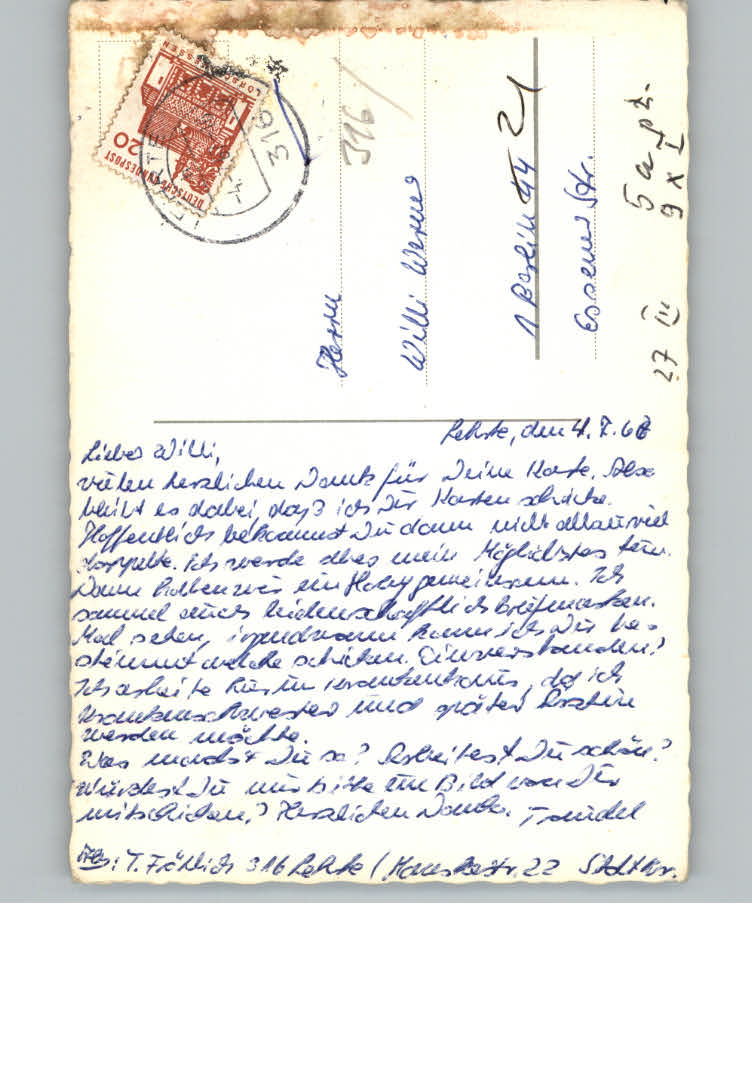 DEUTSCHE BUNDESPOST
20
LORSCH HESSEN
LEHRTE
316
316/
Herrn
Willi Werner
1 Berlin 44 21
Essener Str.
27 III
5 a pz.
9 x I
Lehrte, den 4.7.68
Lieber Willi,
vielen herzlichen Dank für Deine Karte. Also
bleibt es dabei, daß ich Dir Karten schicke.
Hoffentlich bekommst Du dann nicht allzuviel
doppelte. Ich werde aber mein Möglichstes tun.
Dann haben wir ein Hobby gemeinsam. Ich
sammel auch leidenschaftlich Briefmarken.
Mal sehen, irgendwann kann ich Dir be-
stimmt welche schicken. Einverstanden?
Ich arbeite hier im Krankenhaus, da ich
Krankenschwester und später Ärztin
werden möchte.
Was machst Du so? Arbeitest Du schon?
Würdest Du mir bitte ein Bild von Dir
mitschicken? Herzlichen Dank. Traudel
Abs.: T. Fröhlich 316 Lehrte / Manskestr. 22